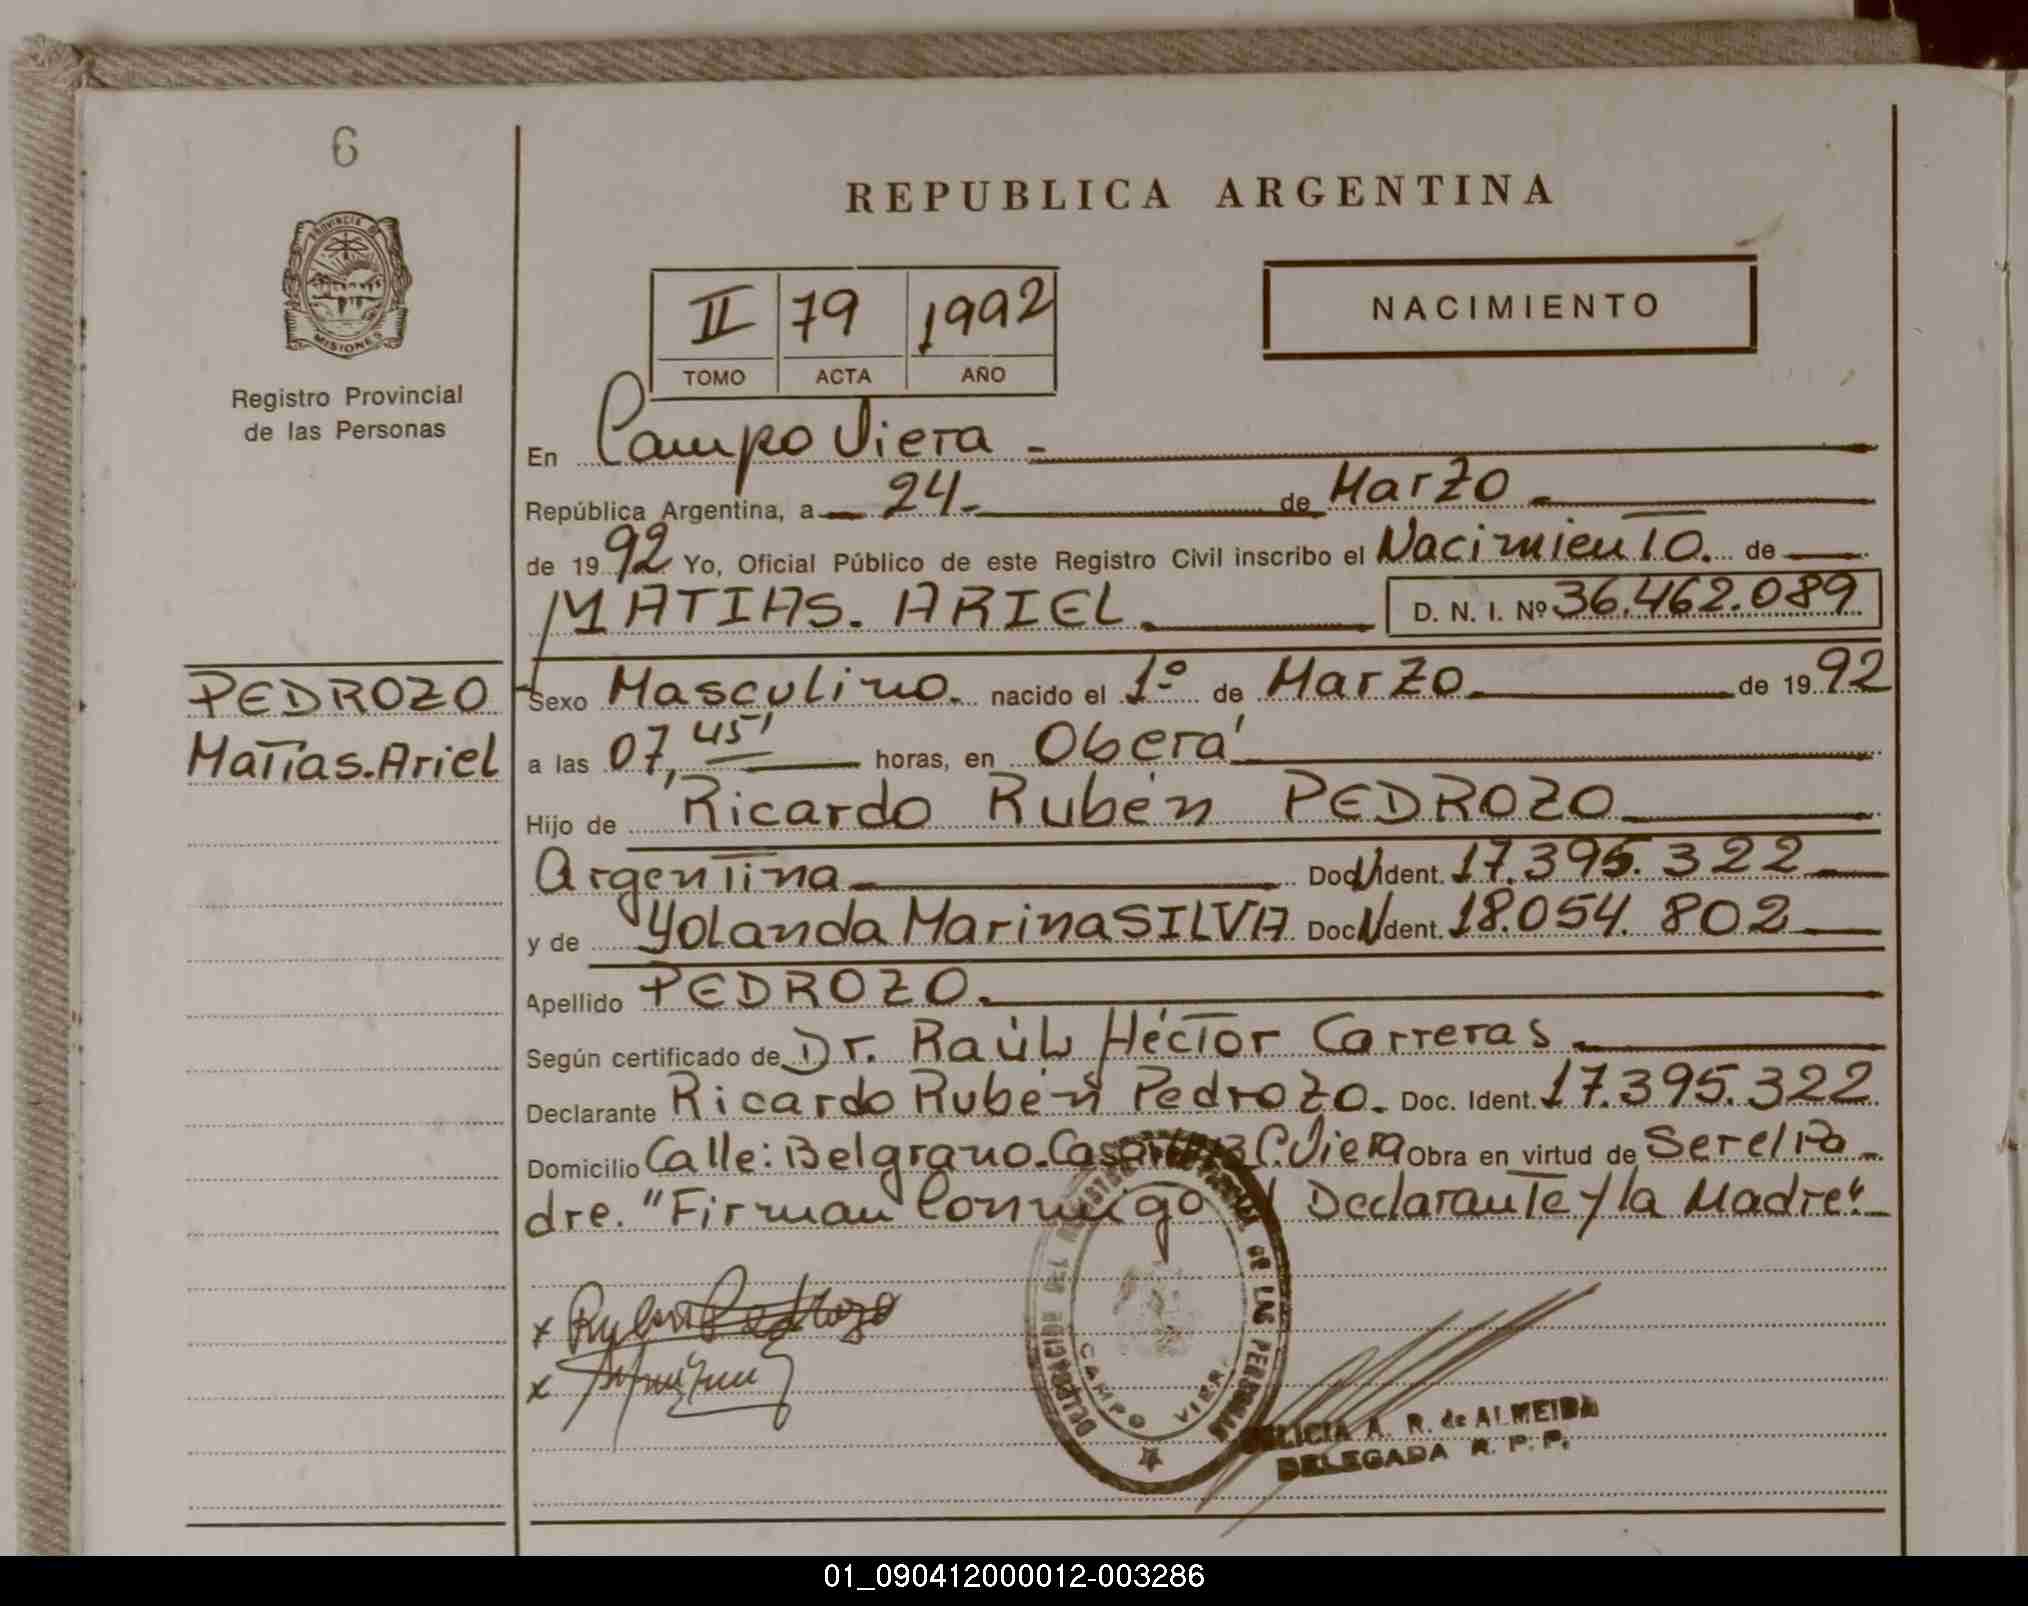 6
PROVINCIA DE
MISIONES
Registro Provincial
de las Personas
PEDROZO
Matías.Ariel
REPUBLICA ARGENTINA
II 79 1992
TOMO ACTA AÑO
NACIMIENTO
En Campo Viera
República Argentina, a 24 de Marzo
de 1992 Yo, Oficial Público de este Registro Civil inscribo el Nacimiento. de
MATIAS. ARIEL D. N. I. Nº 36.462.089
Sexo Masculino. nacido el 1º de Marzo de 1992
a las 07,45' horas, en Oberá
Hijo de Ricardo Rubén PEDROZO
Argentina Doc. Ident. 17.395.322
y de Yolanda Marina SILVA Doc. Ident. 18.054.802
Apellido PEDROZO.
Según certificado de Dr. Raúl Héctor Carreras
Declarante Ricardo Rubén Pedrozo. Doc. Ident. 17.395.322
Domicilio Calle: Belgrano. Casa C.Viera Obra en virtud de Ser el Pa
dre. "Firman Conmigo el Declarante y la Madre".
x Ruben Pedrozo
x
CAMPO VIERA
DE LAS PERSONAS
A. R. de ALMEIDA
DELEGADA R. P. P.
01_090412000012-003286